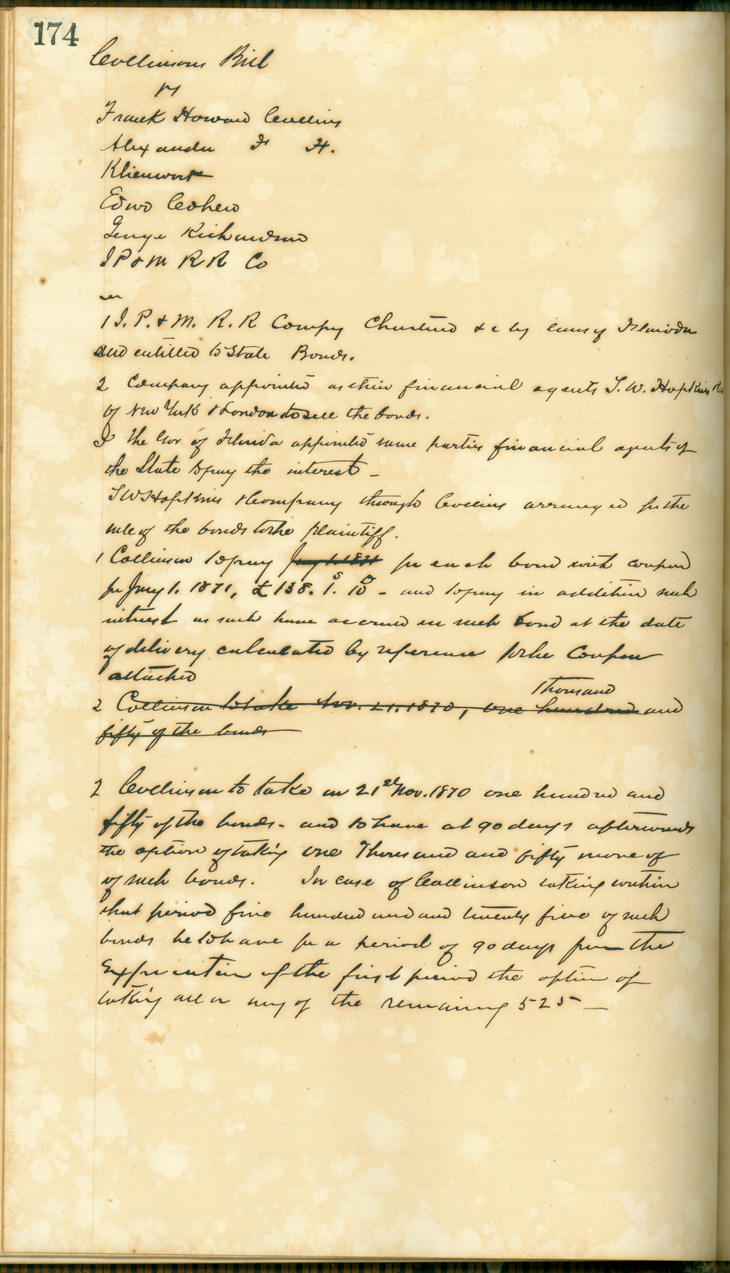 174
Collinsons Bill
vs
Frank Howard Collins
Alexander F H.
Klienwort
Edwd Cohen
George Richardson
J P & M R R Co
1 J. P. & M. R. R Compy Chartered &c by laws of Florida
and entitled to State Bonds.
2 Company appointed as their financial agents S. W. Hopkins &Co
of New York & London to sell the bonds.
3 The Gov of Florida appointed same parties financial agents of
the State to pay the interest –
S W Hopkins & Company through Collins arranged for the
sale of the bonds to the Plaintiff.
1 Collinson to pay Jany 1. 1871 for each bond with coupon
for Jany 1. 1871, £ 138. 1.s 10d – and to pay in addition such
interest as such have accrued on such bond at the date
of delivery calculated by reference to the Coupon
attached
2 Collinson to take Nov. 21. 1870, one hundred thousand and
fifty of the bonds
2 Collinson to take on 21st Nov. 1870 one hundred and
fifty of the bonds – and to have at 90 days afterwards
the option of taking one Thousand and fifty more of
of such bonds. In case of Collinson taking within
that period five hundred and and twenty five of such
bonds he to have for a period of 90 days from the
Expiration of the first period the option of
taking all or any of the remaining 525 –